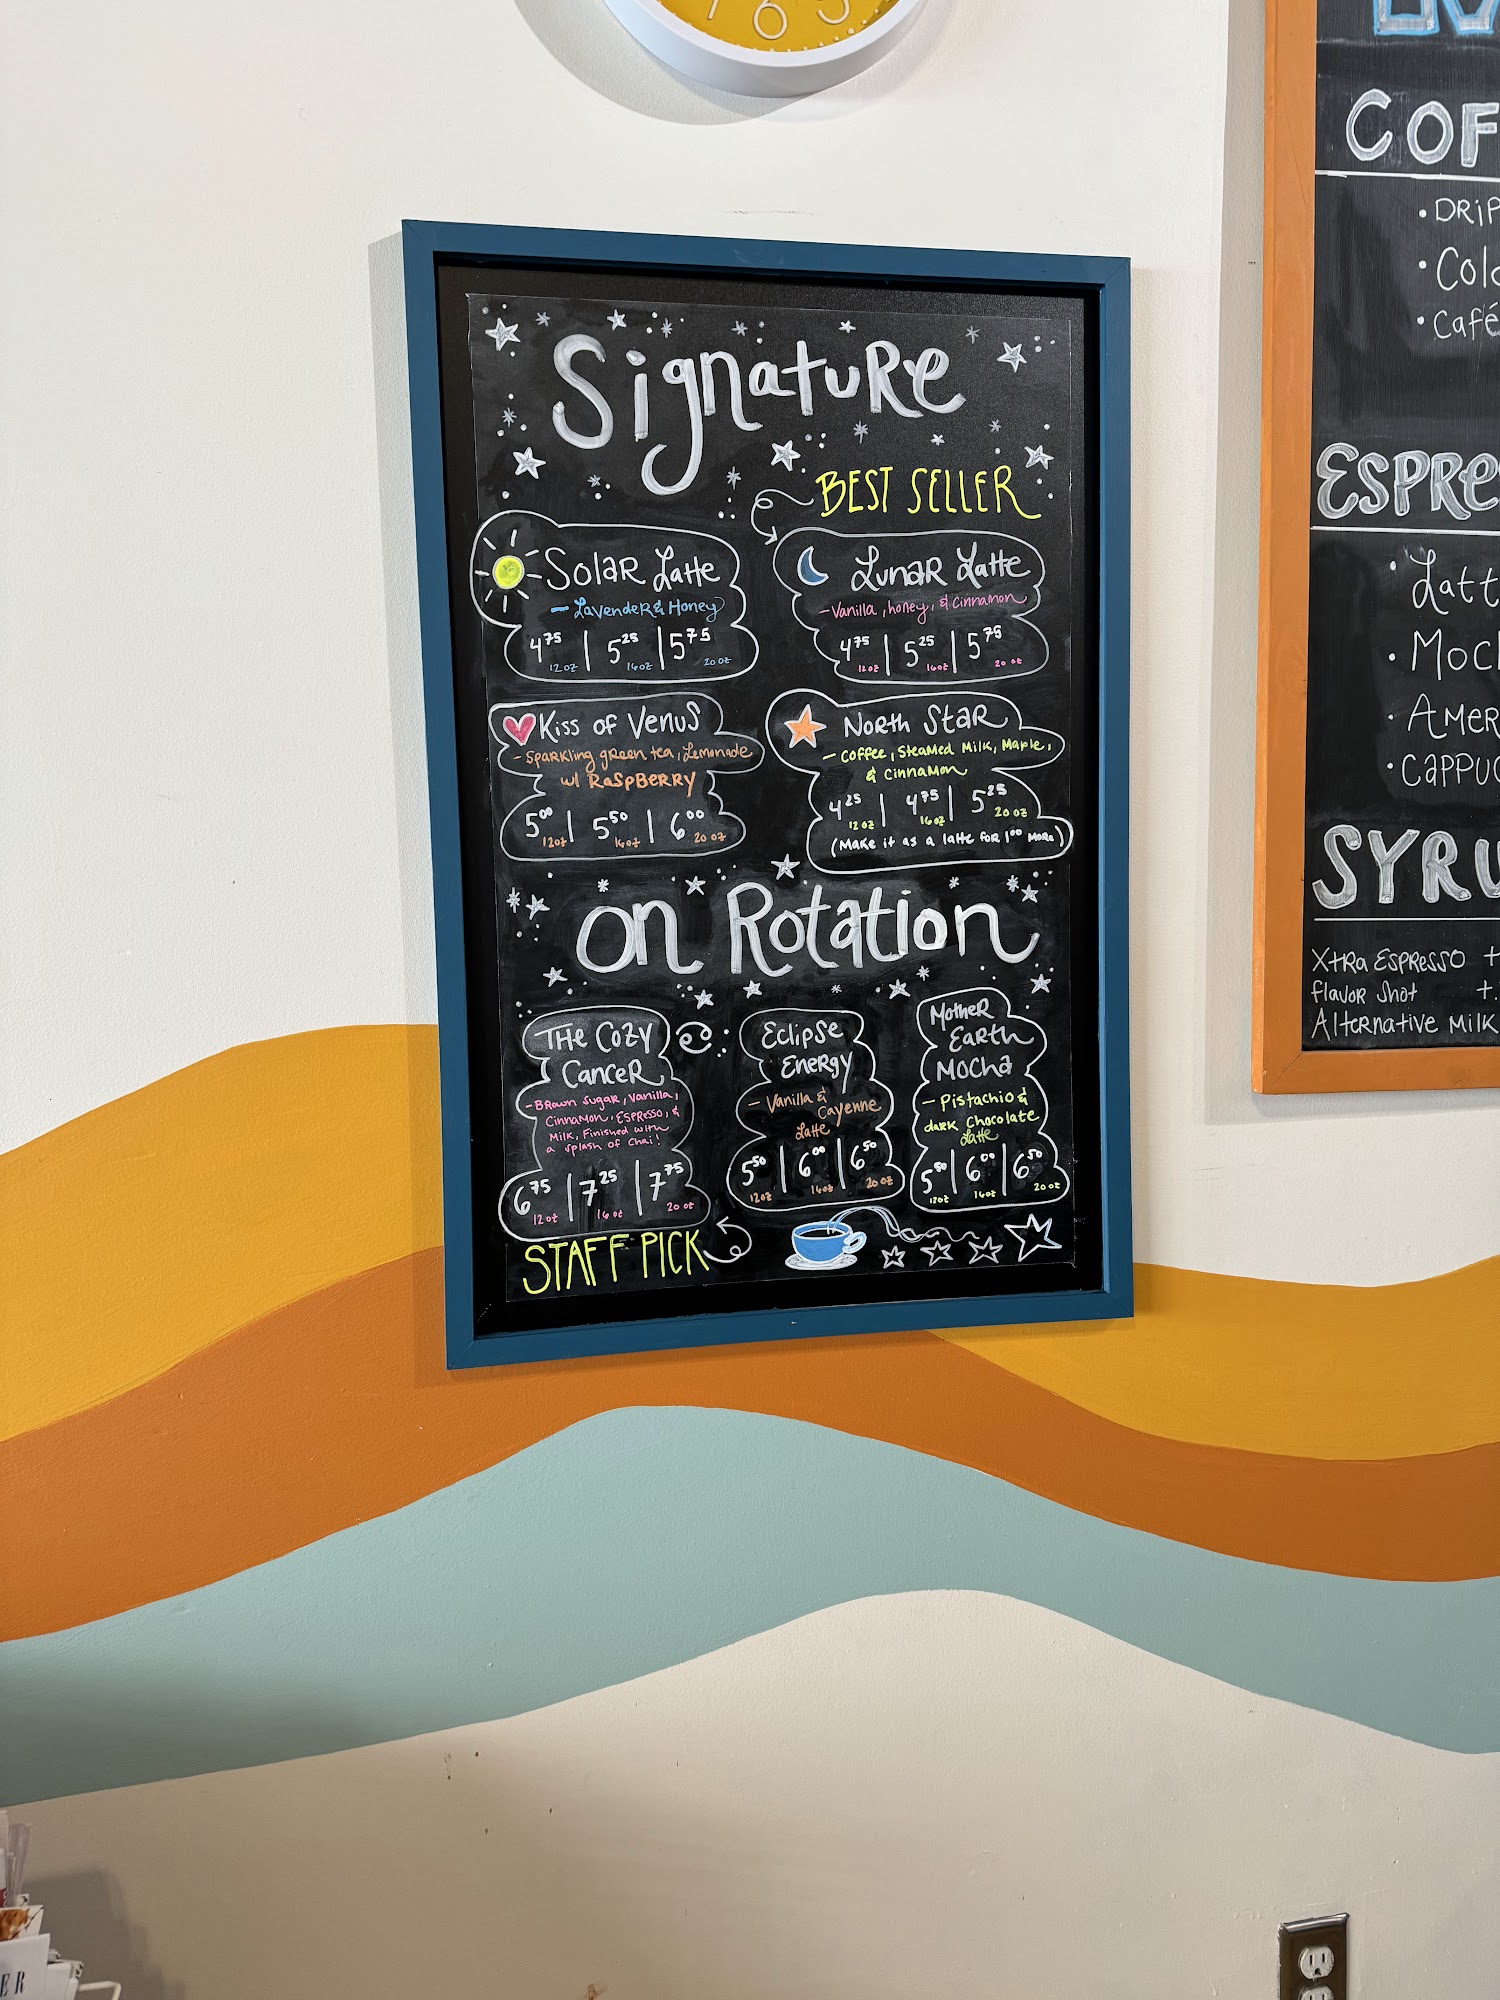 7 6 5
Signature
BEST SELLER
Solar Latte
- Lavender & Honey
4 75 | 5 25 | 5 75
12 oz 16 oz 20 oz
Lunar Latte
- Vanilla, honey, & cinnamon
4 75 | 5 25 | 5 75
12 oz 16 oz 20 oz
Kiss of Venus
- Sparkling green tea, Lemonade
w/ Raspberry
5 00 | 5 50 | 6 00
12 oz 16 oz 20 oz
North Star
- Coffee, Steamed Milk, Maple,
& Cinnamon
4 25 | 4 75 | 5 25
12 oz 16 oz 20 oz
(Make it as a latte for 1 00 more)
On Rotation
The Cozy
Cancer
- Brown Sugar, Vanilla,
Cinnamon, Espresso, &
Milk, Finished with
a splash of Chai!
6 75 | 7 25 | 7 75
12 oz 16 oz 20 oz
STAFF PICK
Eclipse
Energy
- Vanilla &
Cayenne
Latte
5 50 | 6 00 | 6 50
12 oz 16 oz 20 oz
Mother
Earth
Mocha
- Pistachio &
dark Chocolate
Latte
5 50 | 6 00 | 6 50
12 oz 16 oz 20 oz
COF
• DRIP
• Col
• Café
ESPRE
• Latt
• Moc
• AMER
• CAPPUC
SYRU
Xtra Espresso +
flavor Shot +.
Alternative Milk
ER